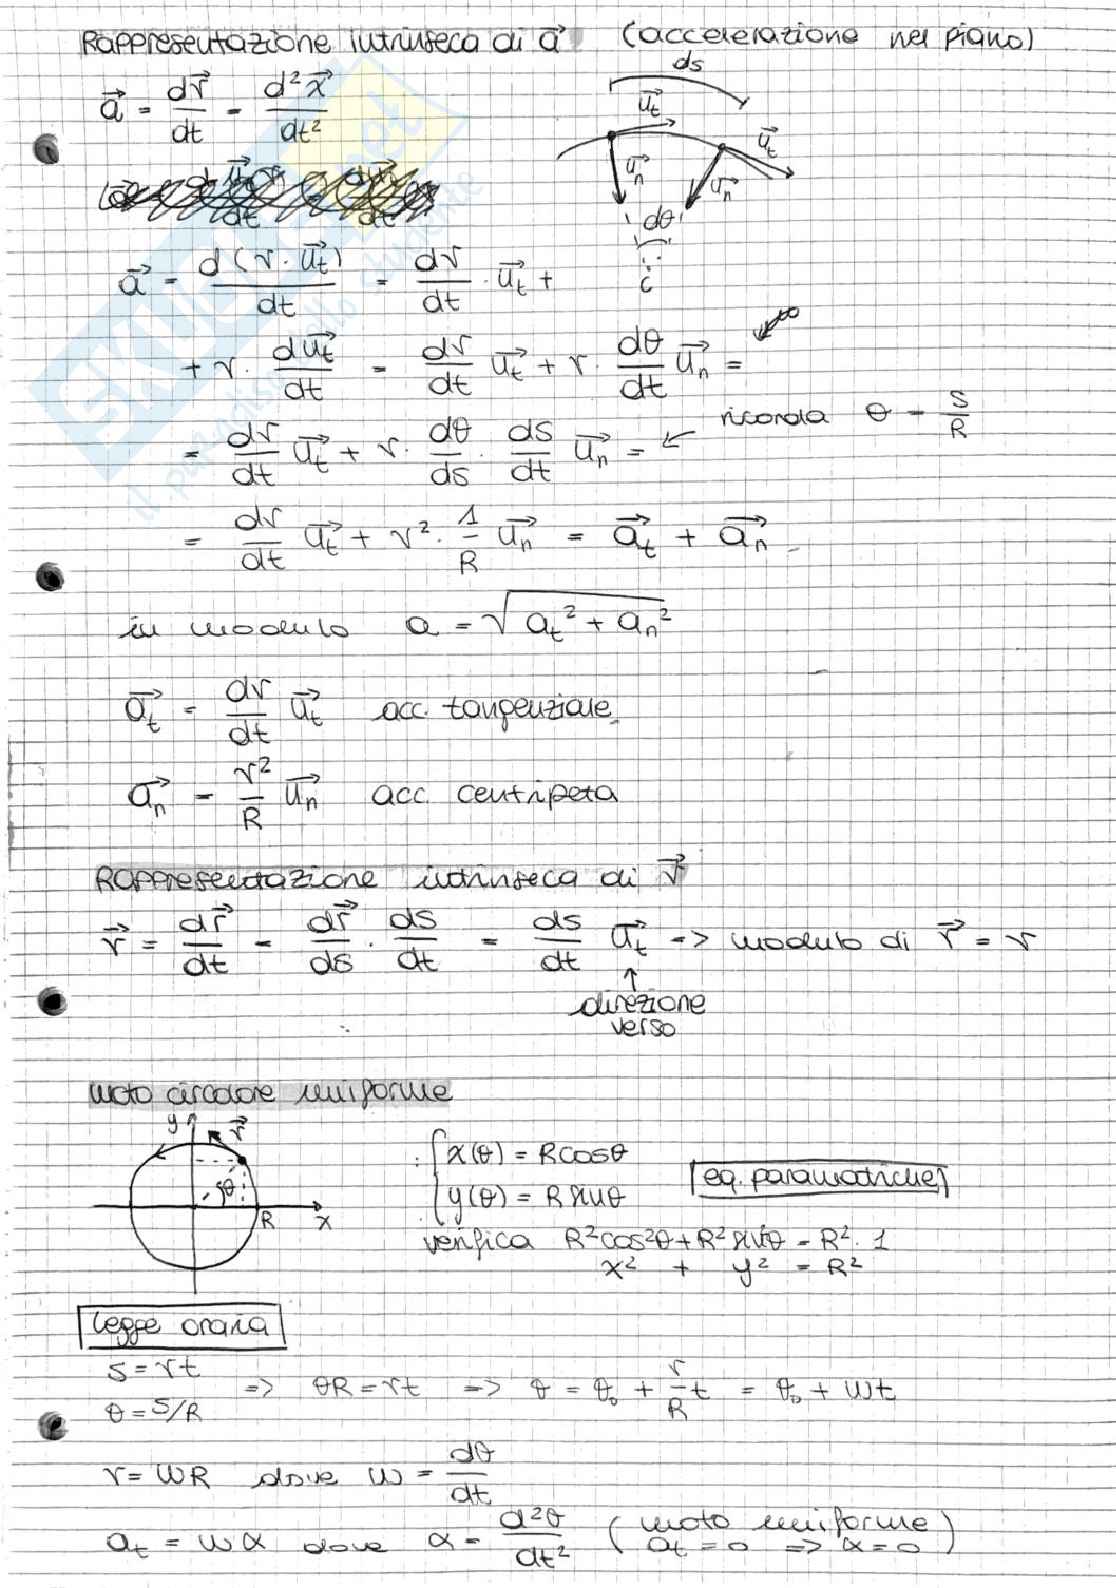 Rappresentazione intrinseca di a⃗ (accelerazione nel piano)
a⃗ = dv⃗/dt = d²x⃗/dt²
ds
u⃗_t
u⃗_t
u⃗_n
u⃗_n
dθ
c
a⃗ = d(v·u⃗_t)/dt = dv/dt · u⃗_t +
+ v · du⃗_t/dt = dv/dt u⃗_t + v · dθ/dt u⃗_n =
= dv/dt u⃗_t + v · dθ/ds · ds/dt u⃗_n = ← ricorda θ = S/R
= dv/dt u⃗_t + v² · 1/R u⃗_n = a⃗_t + a⃗_n
in modulo a = √(a_t² + a_n²)
a⃗_t = dv/dt u⃗_t acc. tangenziale
a⃗_n = v²/R u⃗_n acc. centripeta
Rappresentazione intrinseca di v⃗
v⃗ = dr⃗/dt = dr⃗/ds · ds/dt = ds/dt u⃗_t => modulo di v⃗ = v
↑
direzione
verso
moto circolare uniforme
y v⃗
θ
R x
{ x(θ) = R cosθ
{ y(θ) = R sinθ
eq. parametriche
verifica R²cos²θ + R²sin²θ = R² · 1
x² + y² = R²
legge oraria
S = vt
θ = S/R
=> θR = vt => θ = θ₀ + v/R t = θ₀ + ωt
v = ωR dove ω = dθ/dt
a_t = ωα dove α = d²θ/dt² (moto uniforme
a_t = 0 => α = 0)
SKUOLA.net
il paradiso dello studente